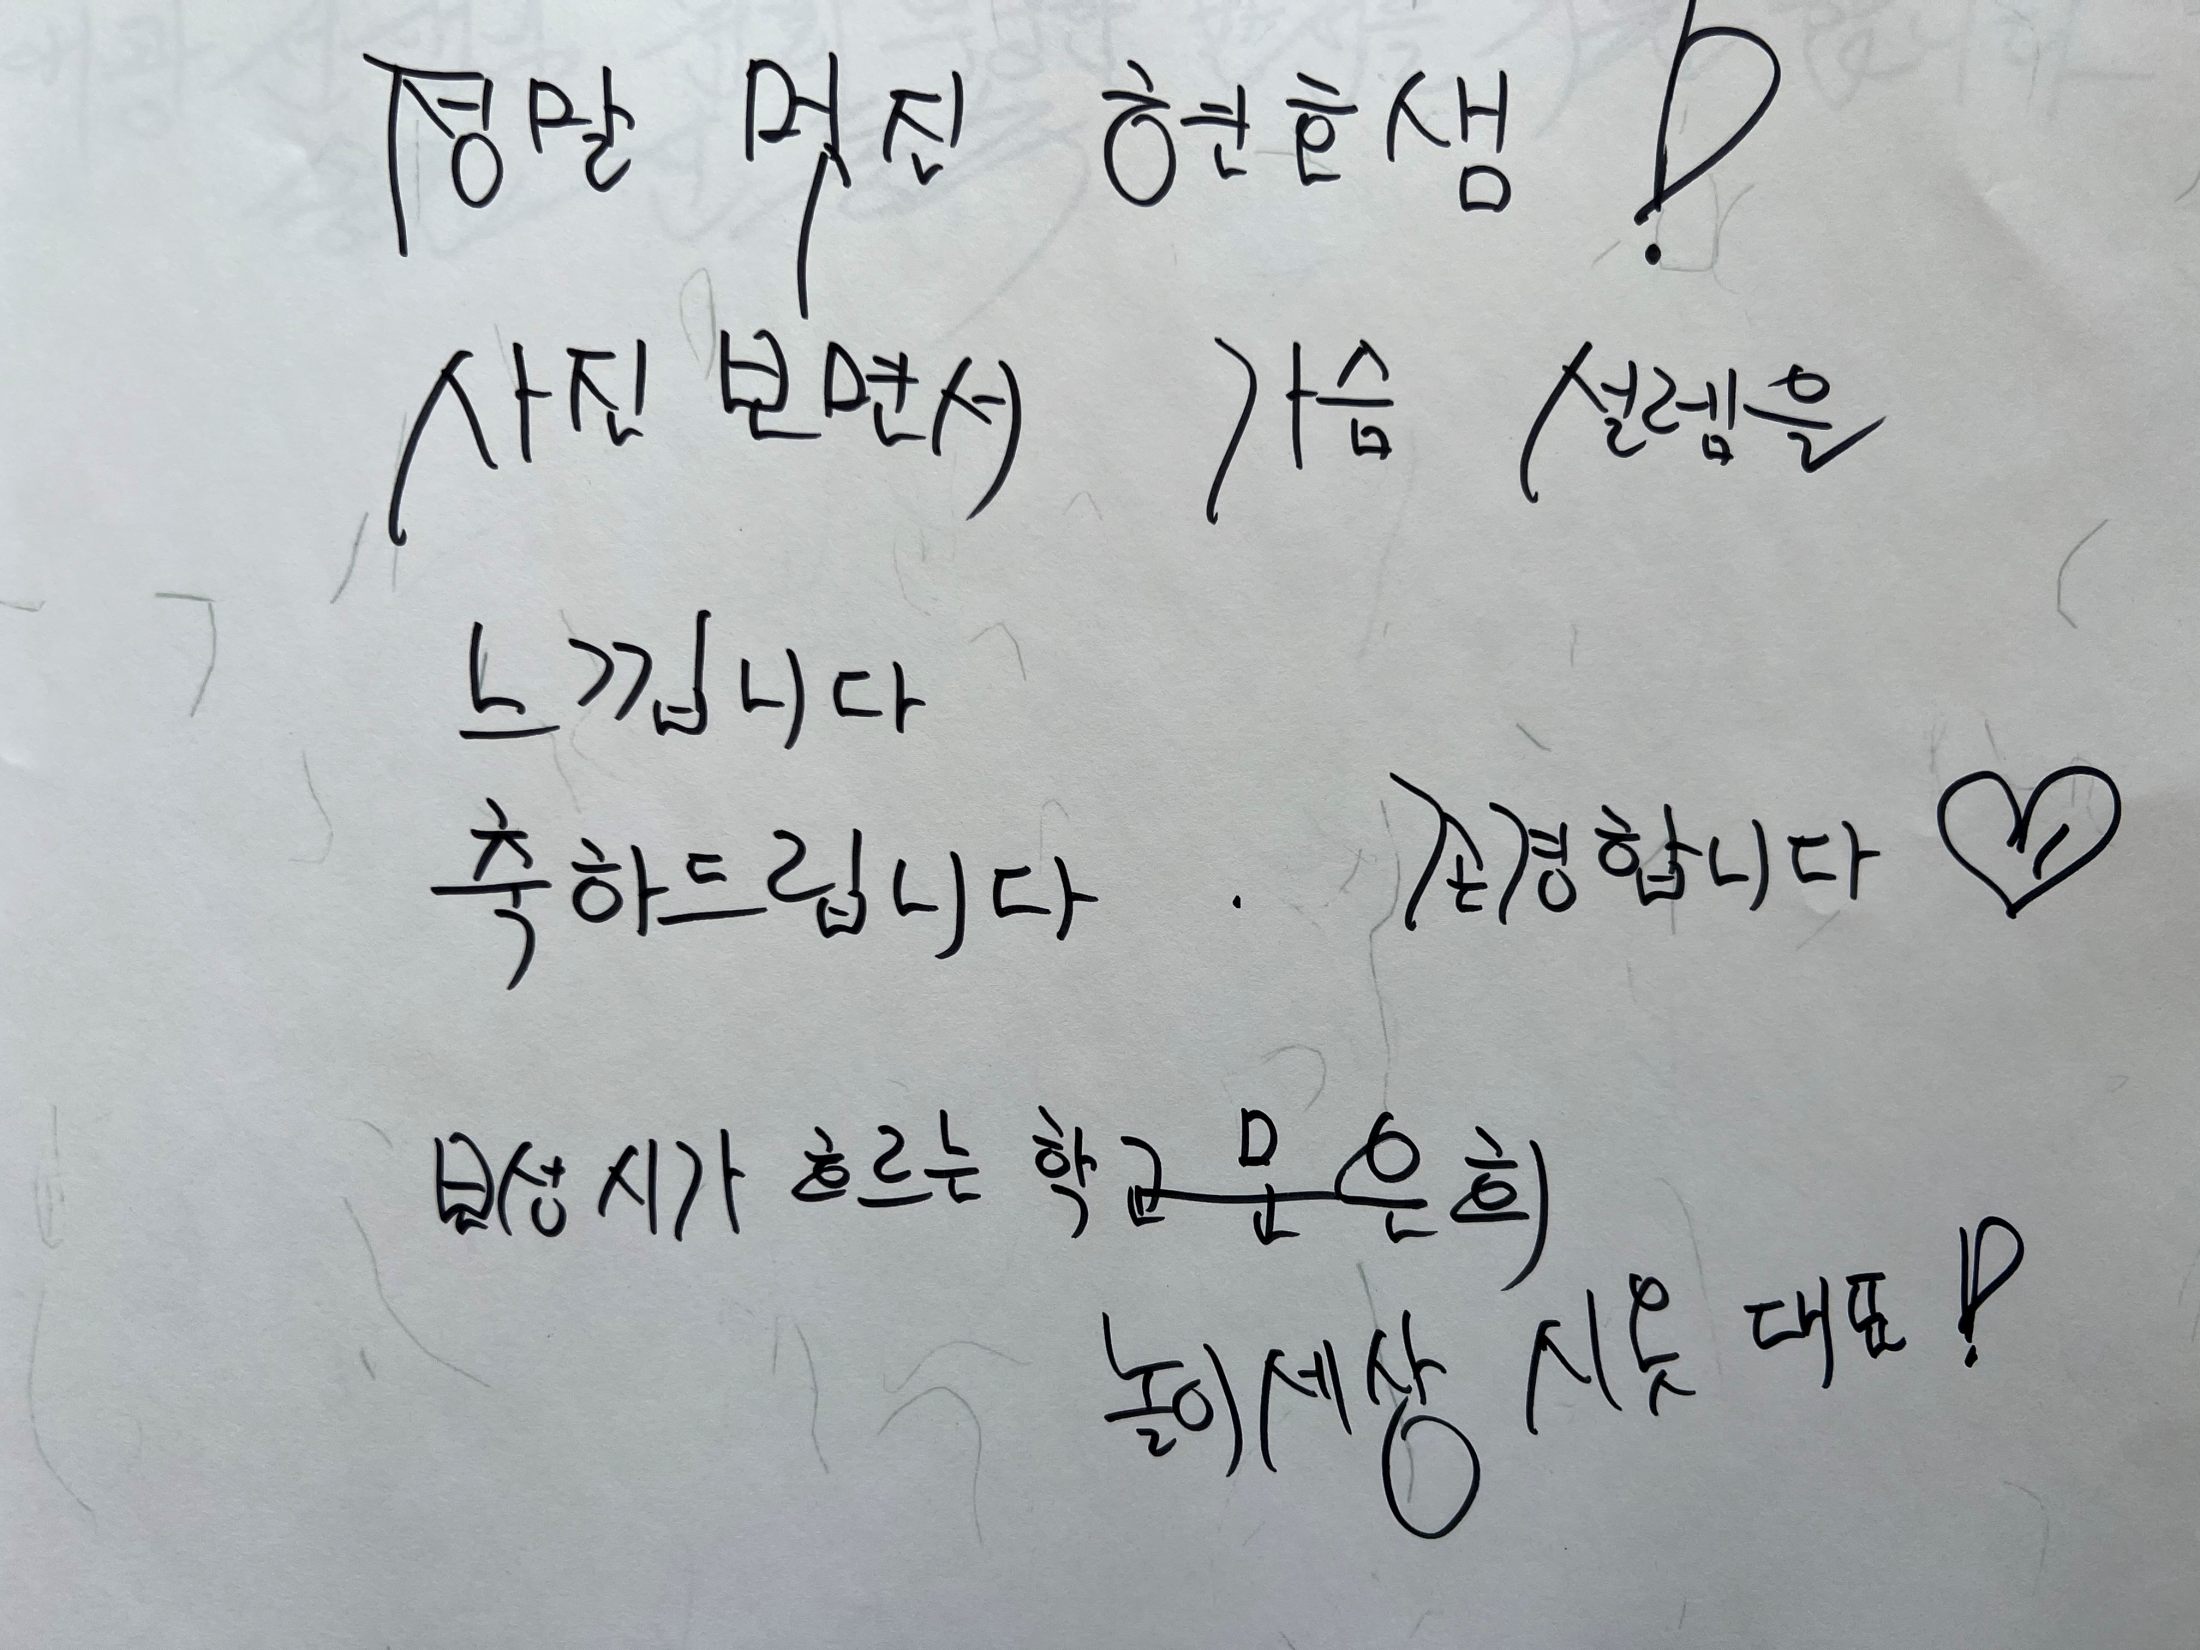 정말 멋진 현호샘!
사진 보면서 가슴 설렘을
느낍니다
축하드립니다. 존경합니다♡
보성 시가 흐르는 학교 문은희
놀이세상 시옷 대표!